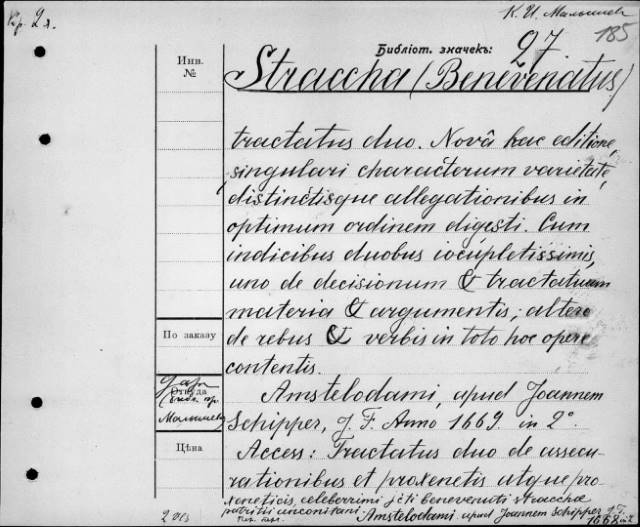 Кр. 2я.
К. И. Малышев
185
Библіот. значекъ: 27
Инв.
№
Straccha (Benevenatus)
tractatus duo. Novâ hac editione,
singulari characterum varietate,
distinctisque allegationibus in
optimum ordinem digesti. Cum
indicibus duobus locupletissimis,
uno de decisionum & tractatuum
materia & argumentis; altero
de rebus & verbis in toto hoc opere
contentis.
По заказу
Amstelodami, apud Joannem
Schipper, J. F. Anno 1669. in 2°.
Даръ
Откуда
Малышева
Цѣна
Access: Tractatus duo de assecu-
rationibus et proxenetis atque pro
xeneticis, celeberrimi jcti benevenuti stracchae
patritii anconitani
Amstelodami. apud Joannem Schipper J. F.
1668.